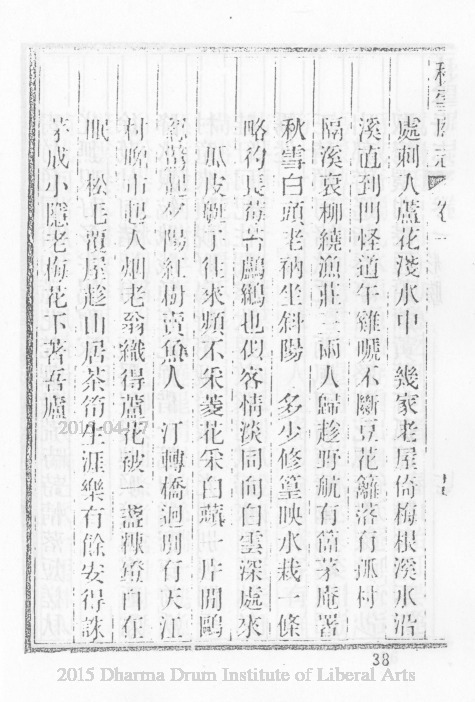 秋雪庵志 卷一
處刺入蘆花淺水中　幾家老屋倚梅根溪水沿
溪直到門怪道午雞啼不斷豆花籬落有孤村
隔溪衰柳繞漁莊三兩人歸趁野航有箇茅庵署
秋雪白頭老衲坐斜陽　多少修篁映水栽一條
略彴長莓苔鸕鶿也似客情淡同向白雲深處來
瓜皮艇子往來頻不采菱花采白蘋一片閒鷗
驚起夕陽紅樹賣魚人　汀轉橋迴別有天江
村晚市起人烟老翁織得蘆花被一盞燈自在
眠　松毛覆屋趁山居茶筍生涯樂有餘安得誅
茅成小隱老梅花下著吾廬
2015-04-17
38
2015 Dharma Drum Institute of Liberal Arts